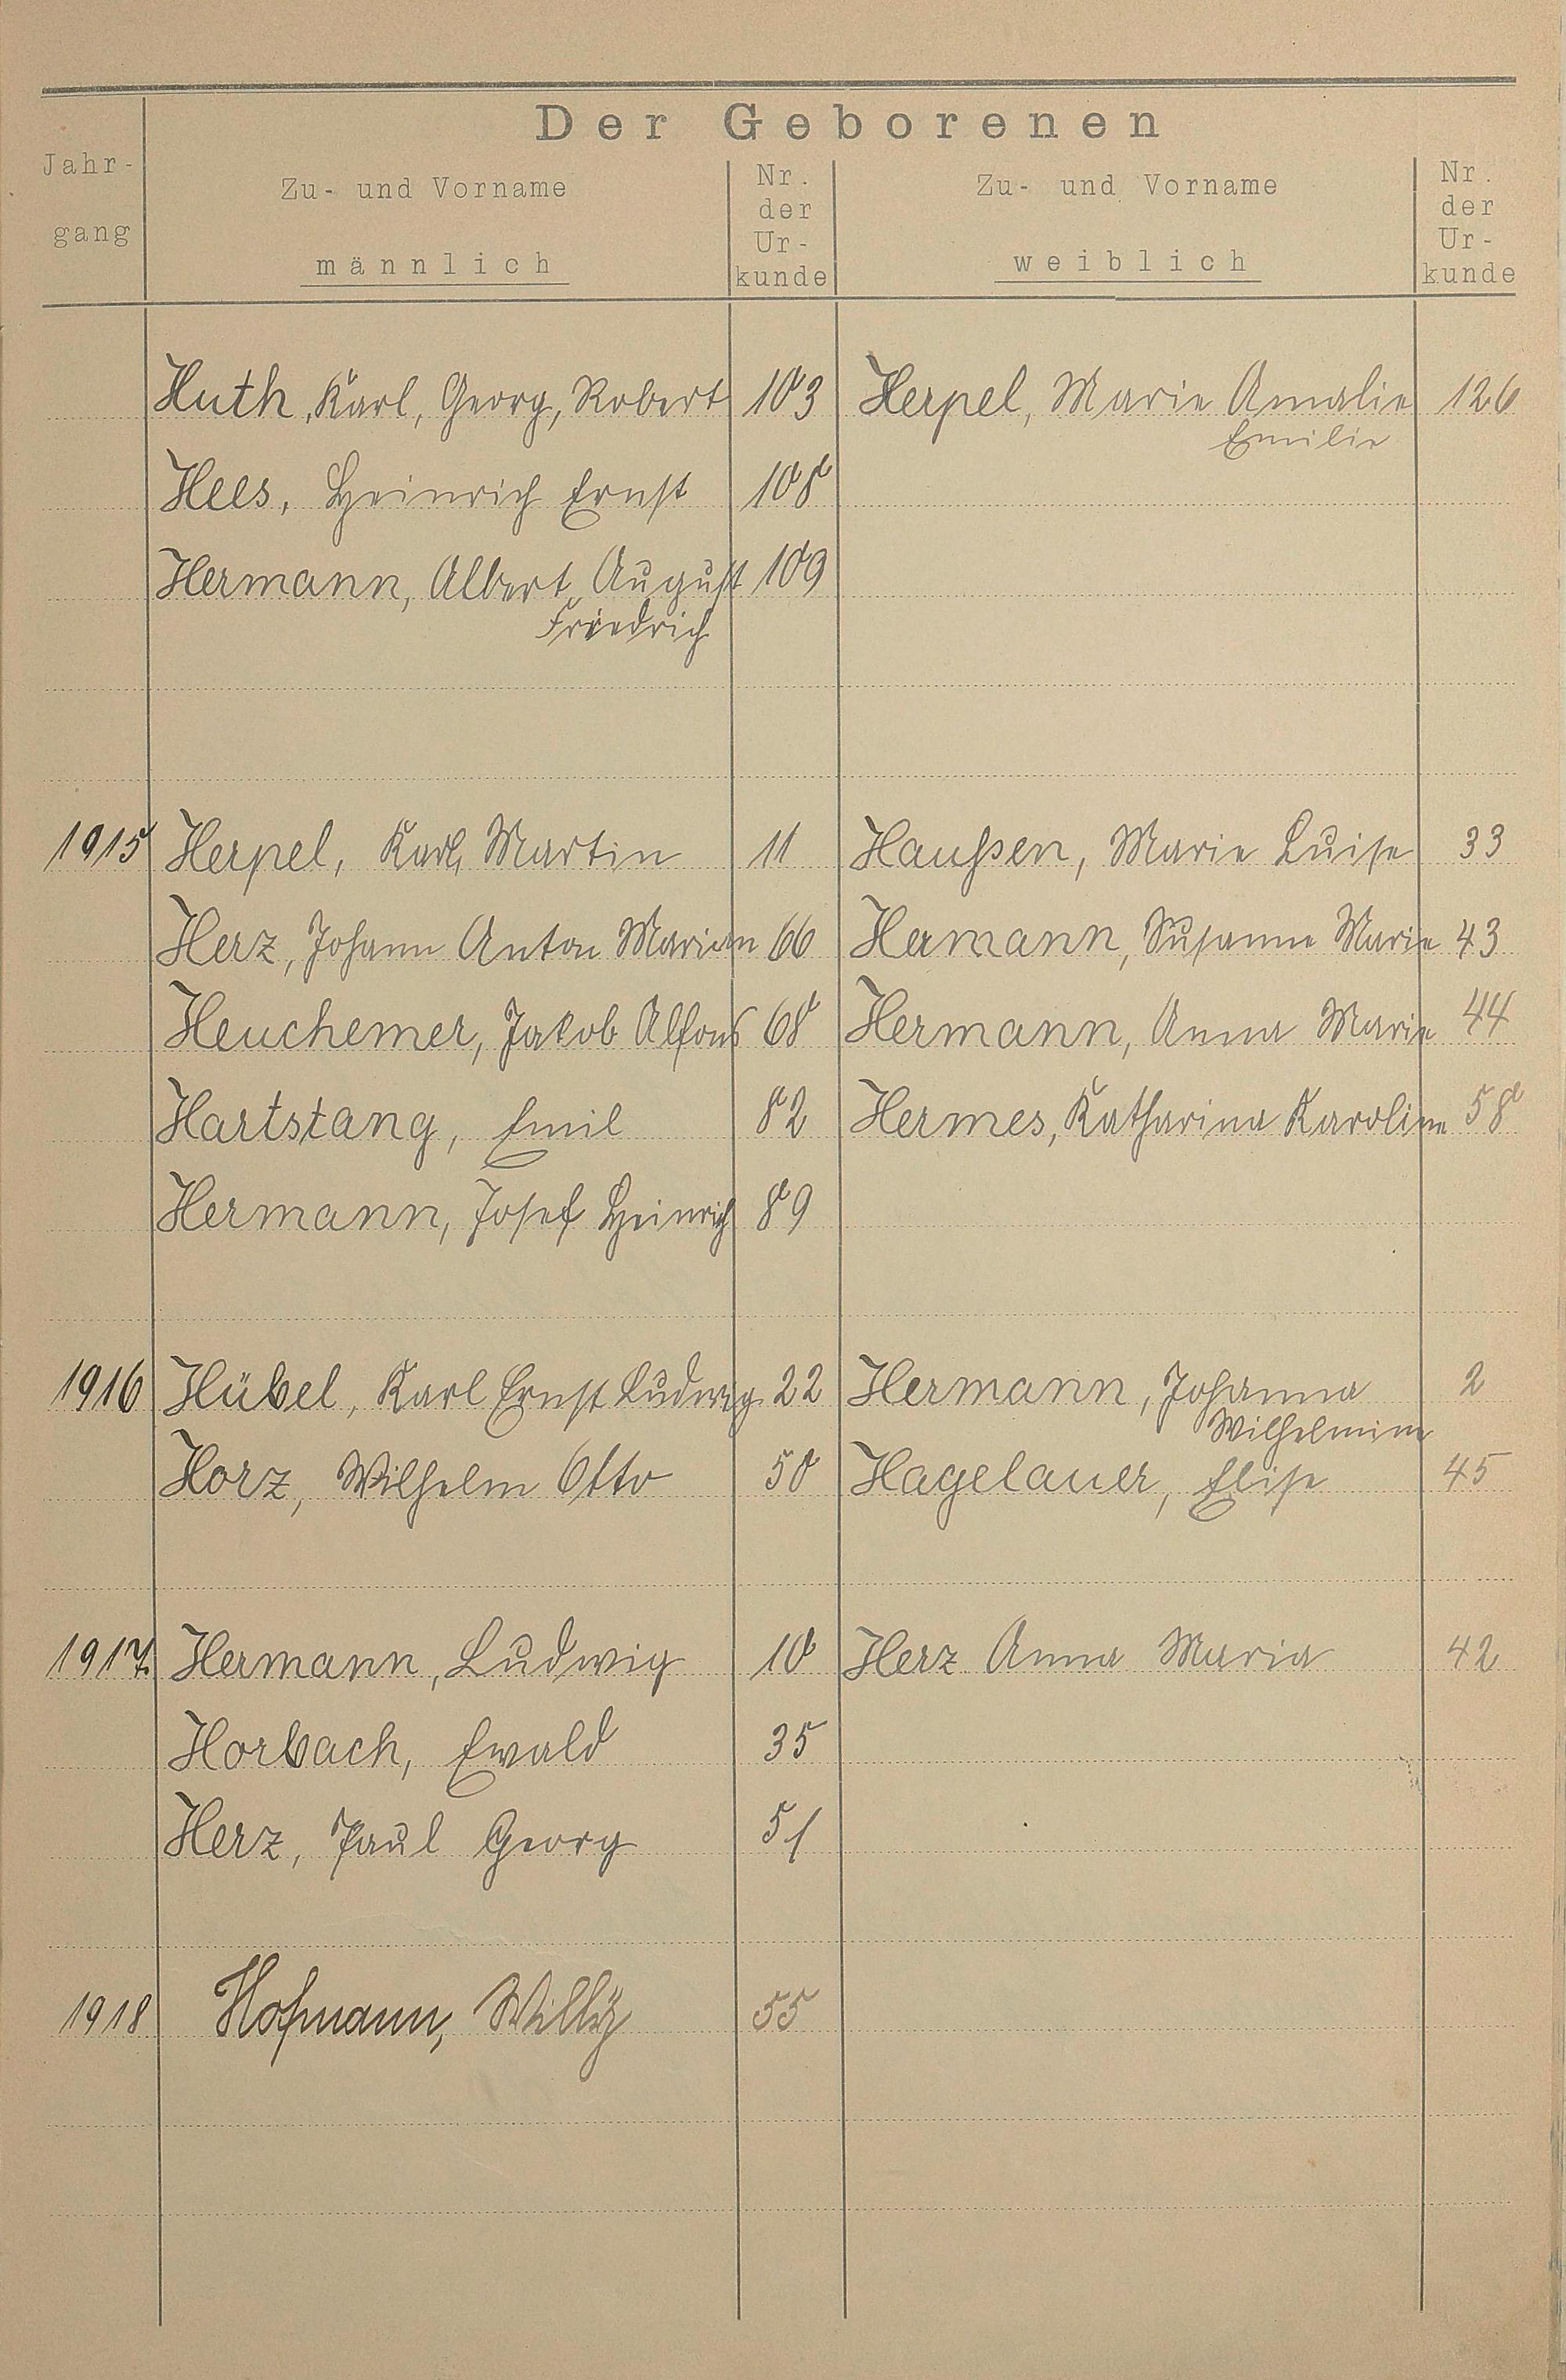 Der Geborenen
Jahr-
gang
Zu- und Vorname
männlich
Nr.
der
Ur-
kunde
Zu- und Vorname
weiblich
Nr.
der
Ur-
kunde
Huth, Karl, Georg, Robert 103 Herpel, Marie Amalie 126
Emilie
Hees, Heinrich Ernst 108
Hermann, Albert, August 109
Friedrich
1915 Herpel, Karl, Martin 11 Haußen, Marie Luise 33
Herz, Johann Anton Marian 66 Hermann, Susanne Marie 43
Heuchemer, Jakob Alfons 68 Hermann, Anna Marie 44
Hartstang, Emil 82 Hermes, Katharina Karoline 58
Hermann, Josef Heinrich 89
1916 Hübel, Karl Ernst Ludwig 22 Hermann, Johanna 2
Wilhelmine
Horz, Wilhelm Otto 50 Hagelauer, Elise 45
1917. Hermann, Ludwig 10 Herz Anna Maria 42
Horbach, Ewald 35
Herz, Paul Georg 51
1918 Hofmann, Willy 55